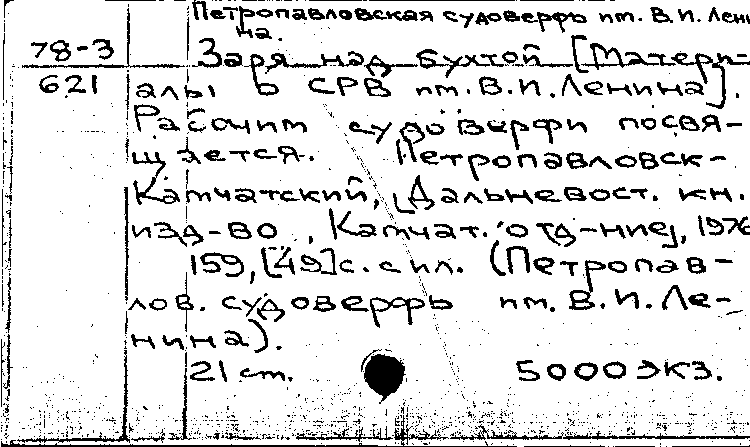 Петропавловская судоверфь им. В.И. Лени-
на.
78-3 Заря над бухтой [Матери-
621 алы о СРВ им. В.И. Ленина].
Рабочим судоверфи посвя-
щается. Петропавловск-
Камчатский, [Дальневост. кн.
изд-во, Камчат. отд-ние], 1976
159, [49] с. с ил. (Петропав-
лов. судоверфь им. В.И. Ле-
нина).
21 см. 5000 экз.